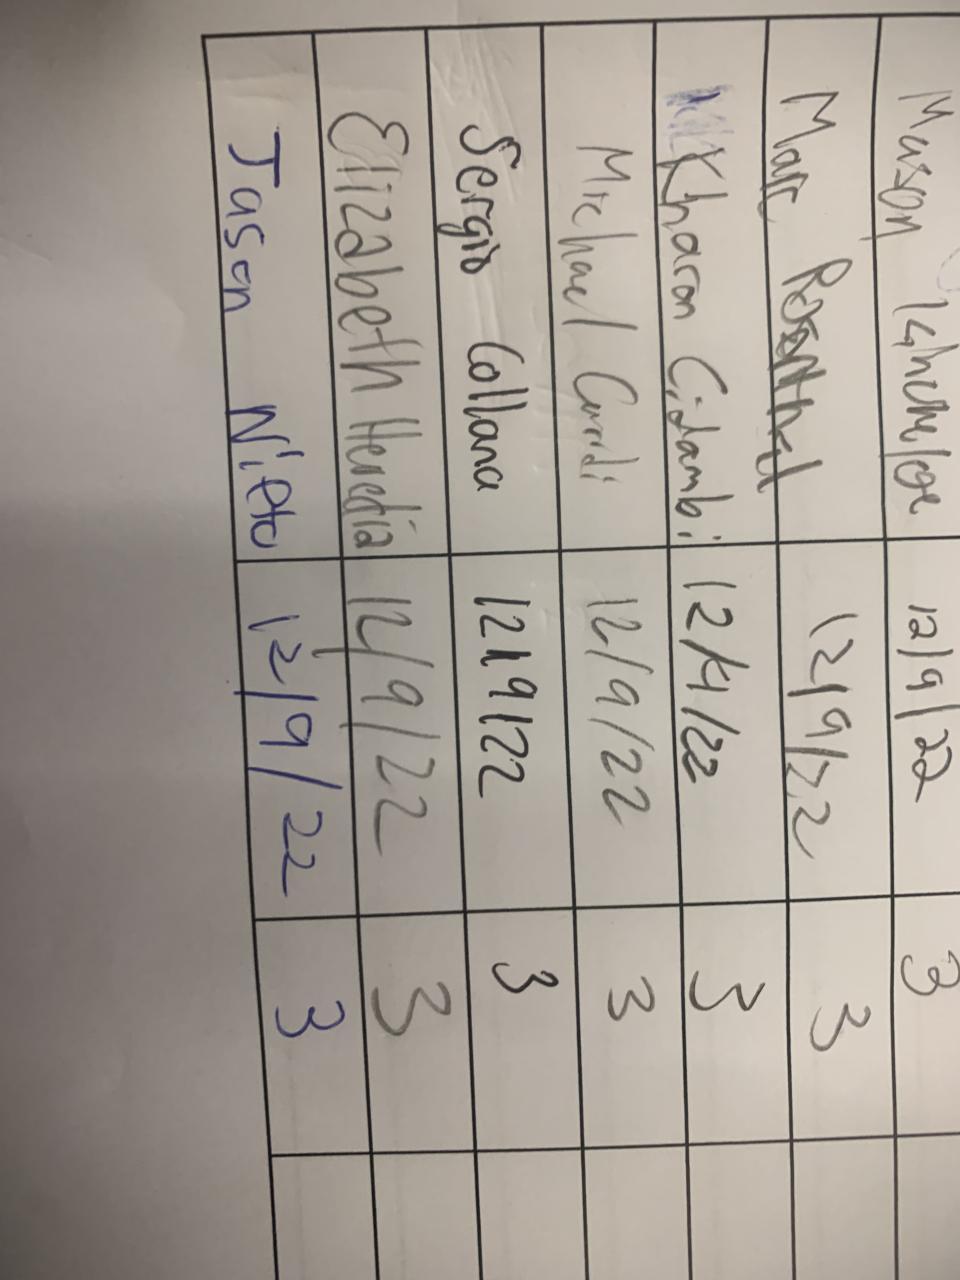 Mason 12/9/22 3
Marc Rosenthal 12/9/22 3
Kharon Cidambi 12/9/22 3
Michael 12/9/22 3
Sergio Collana 12/9/22 3
Elizabeth Heredia 12/9/22 3
Jason Nieto 12/9/22 3